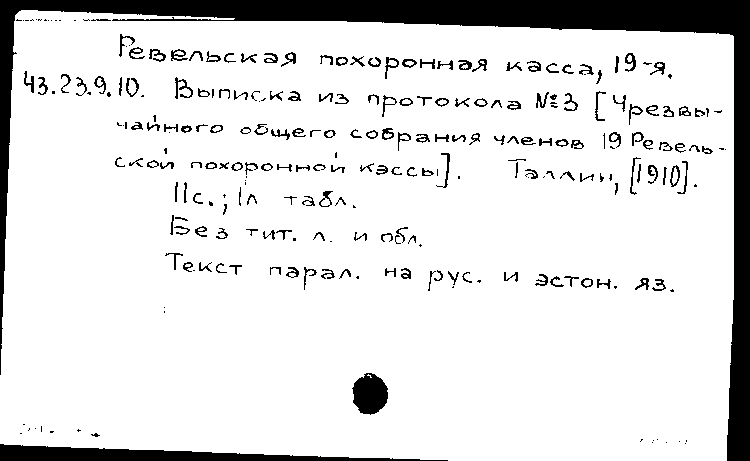 Ревельская похоронная касса, 19-я.
43.23.9.10. Выписка из протокола №3 [Чрезвы-
чайного общего собрания членов 19 Ревель-
ской похоронной кассы]. Таллин, [1910].
11с.; 1л табл.
Без тит. л. и обл.
Текст парал. на рус. и эстон. яз.